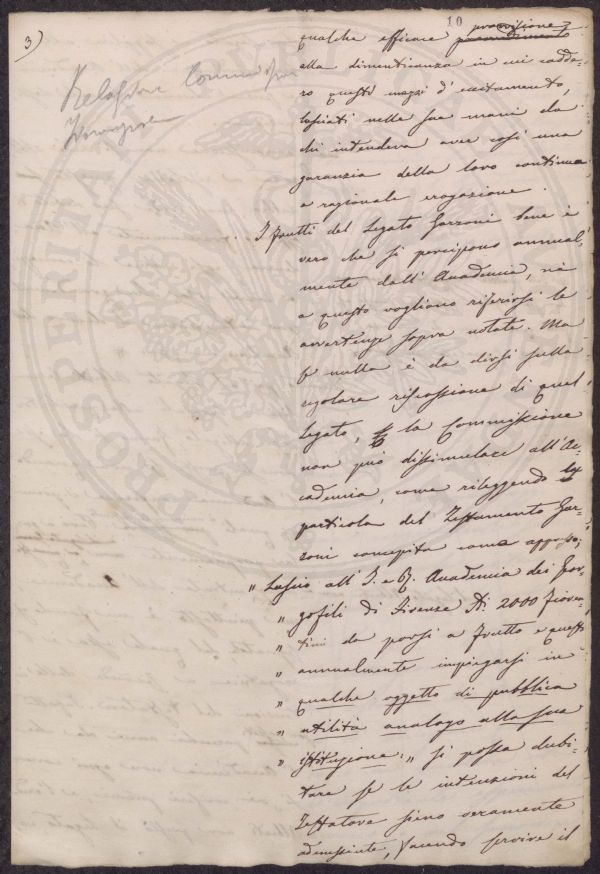 3)
10
Relazione Commissione
provvisione
qualche efficace provvedimento
alla dimenticanza in cui cadde-
ro questi mezzi d'eccitamento,
lasciati nelle sue mani da
chi intendeva aver così una
garanzia della loro continua
e razionale erogazione.
I frutti del Legato Garzoni bene è
vero che si percipono annual-
mente dall'Accademia, nè
a questo vogliono riferirsi le
avvertenze sopra notate. Ma
se nulla è da dirsi sulla
regolare riscossione di quel
legato, la Commissione
non può dissimulare all'Ac-
cademia, come rileggendo la
particola del Testamento Gar-
zoni concepita come appresso;
" Lascio all'I. e R. Accademia dei Geor-
" gofili di Firenze 2000 fioren-
" tini da porsi a frutto e questo
" annualmente impiegarsi in
" qualche oggetto di pubblica
" utilità analogo alla sua
" istituzione: " si possa dubi-
tare se le intenzioni del
Testatore sieno veramente
adempiute, facendo servire il